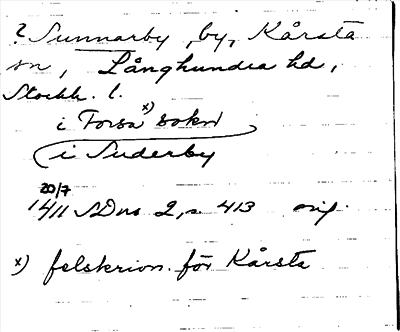 ? Sunnarby, by, Kårsta
sn, Långhundra hd,
Stockh. l.
i Forsa x) sokn
i Suderby
20/7
1411 SDns 2, s. 413 orig.
x) felskrivn. för Kårsta